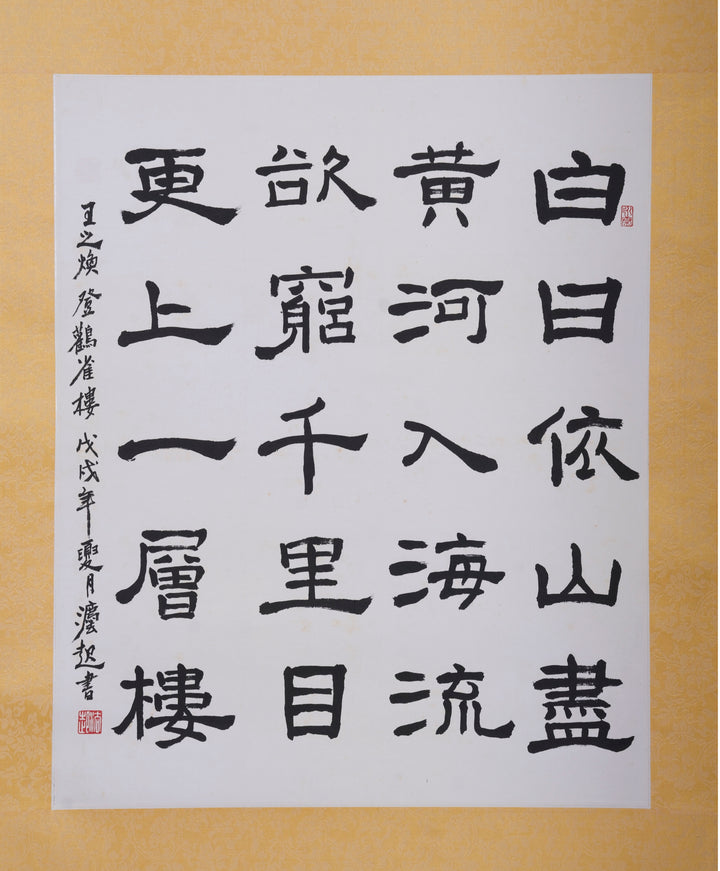 白日依山盡
黄河入海流
欲竆千里目
更上一層樓
王之焕登鸛雀樓 戊戌年夏月灋超書